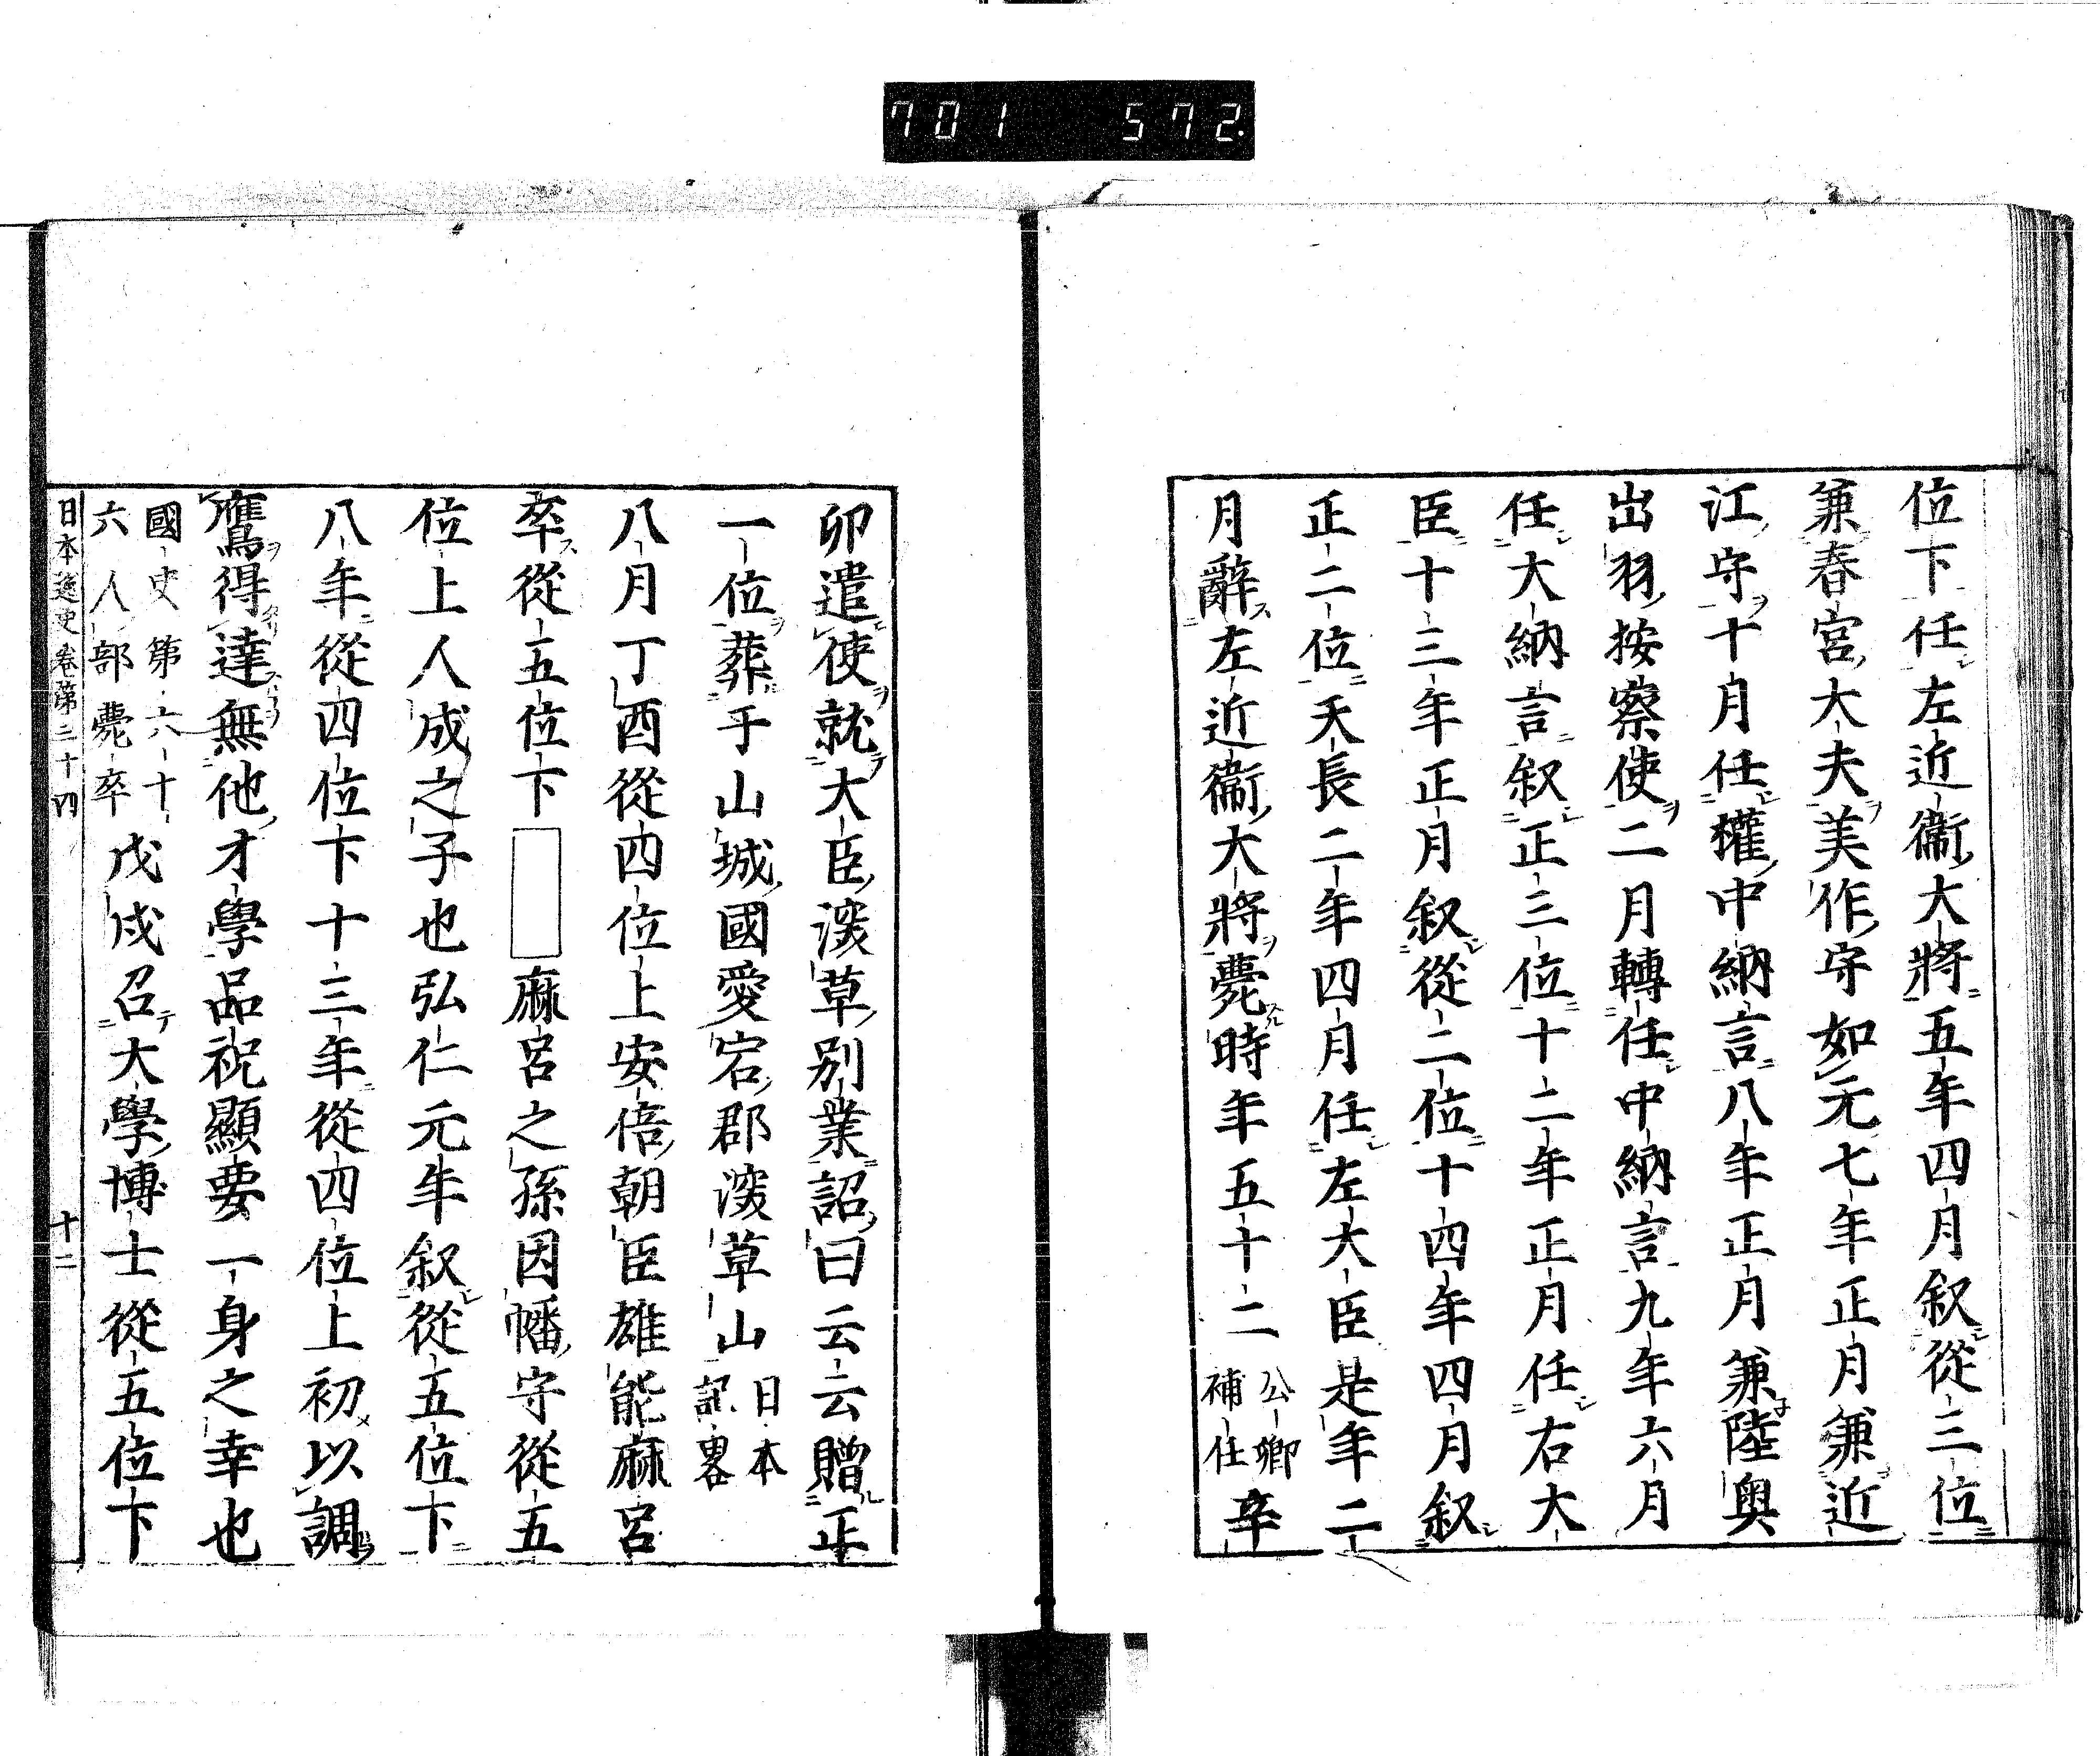 701 572.
位下任左近衞大將五年四月叙從三位
兼春宮大夫美作守如元七年正月兼近
江守十月任權中納言八年正月兼陸奥
出羽按察使二月轉任中納言九年六月
任大納言叙正三位十二年正月任右大
臣十三年正月叙從二位十四年四月叙
正二位天長二年四月任左大臣是年二
月辭左近衞大將薨時年五十二公卿補任辛
卯遣使就大臣深草別業詔曰云云贈正
一位葬于山城國愛宕郡深草山日本記畧
八月丁酉從四位上安倍朝臣雄能麻呂
卒從五位下□麻呂之孫因幡守從五
位上人成之子也弘仁元年叙從五位下
八年從四位下十三年從四位上初以調
鷹得達無他才學品祝顯要一身之幸也
國史第六十六人部薨卒戊戌召大學博士從五位下
日本逸史卷第三十四 十二